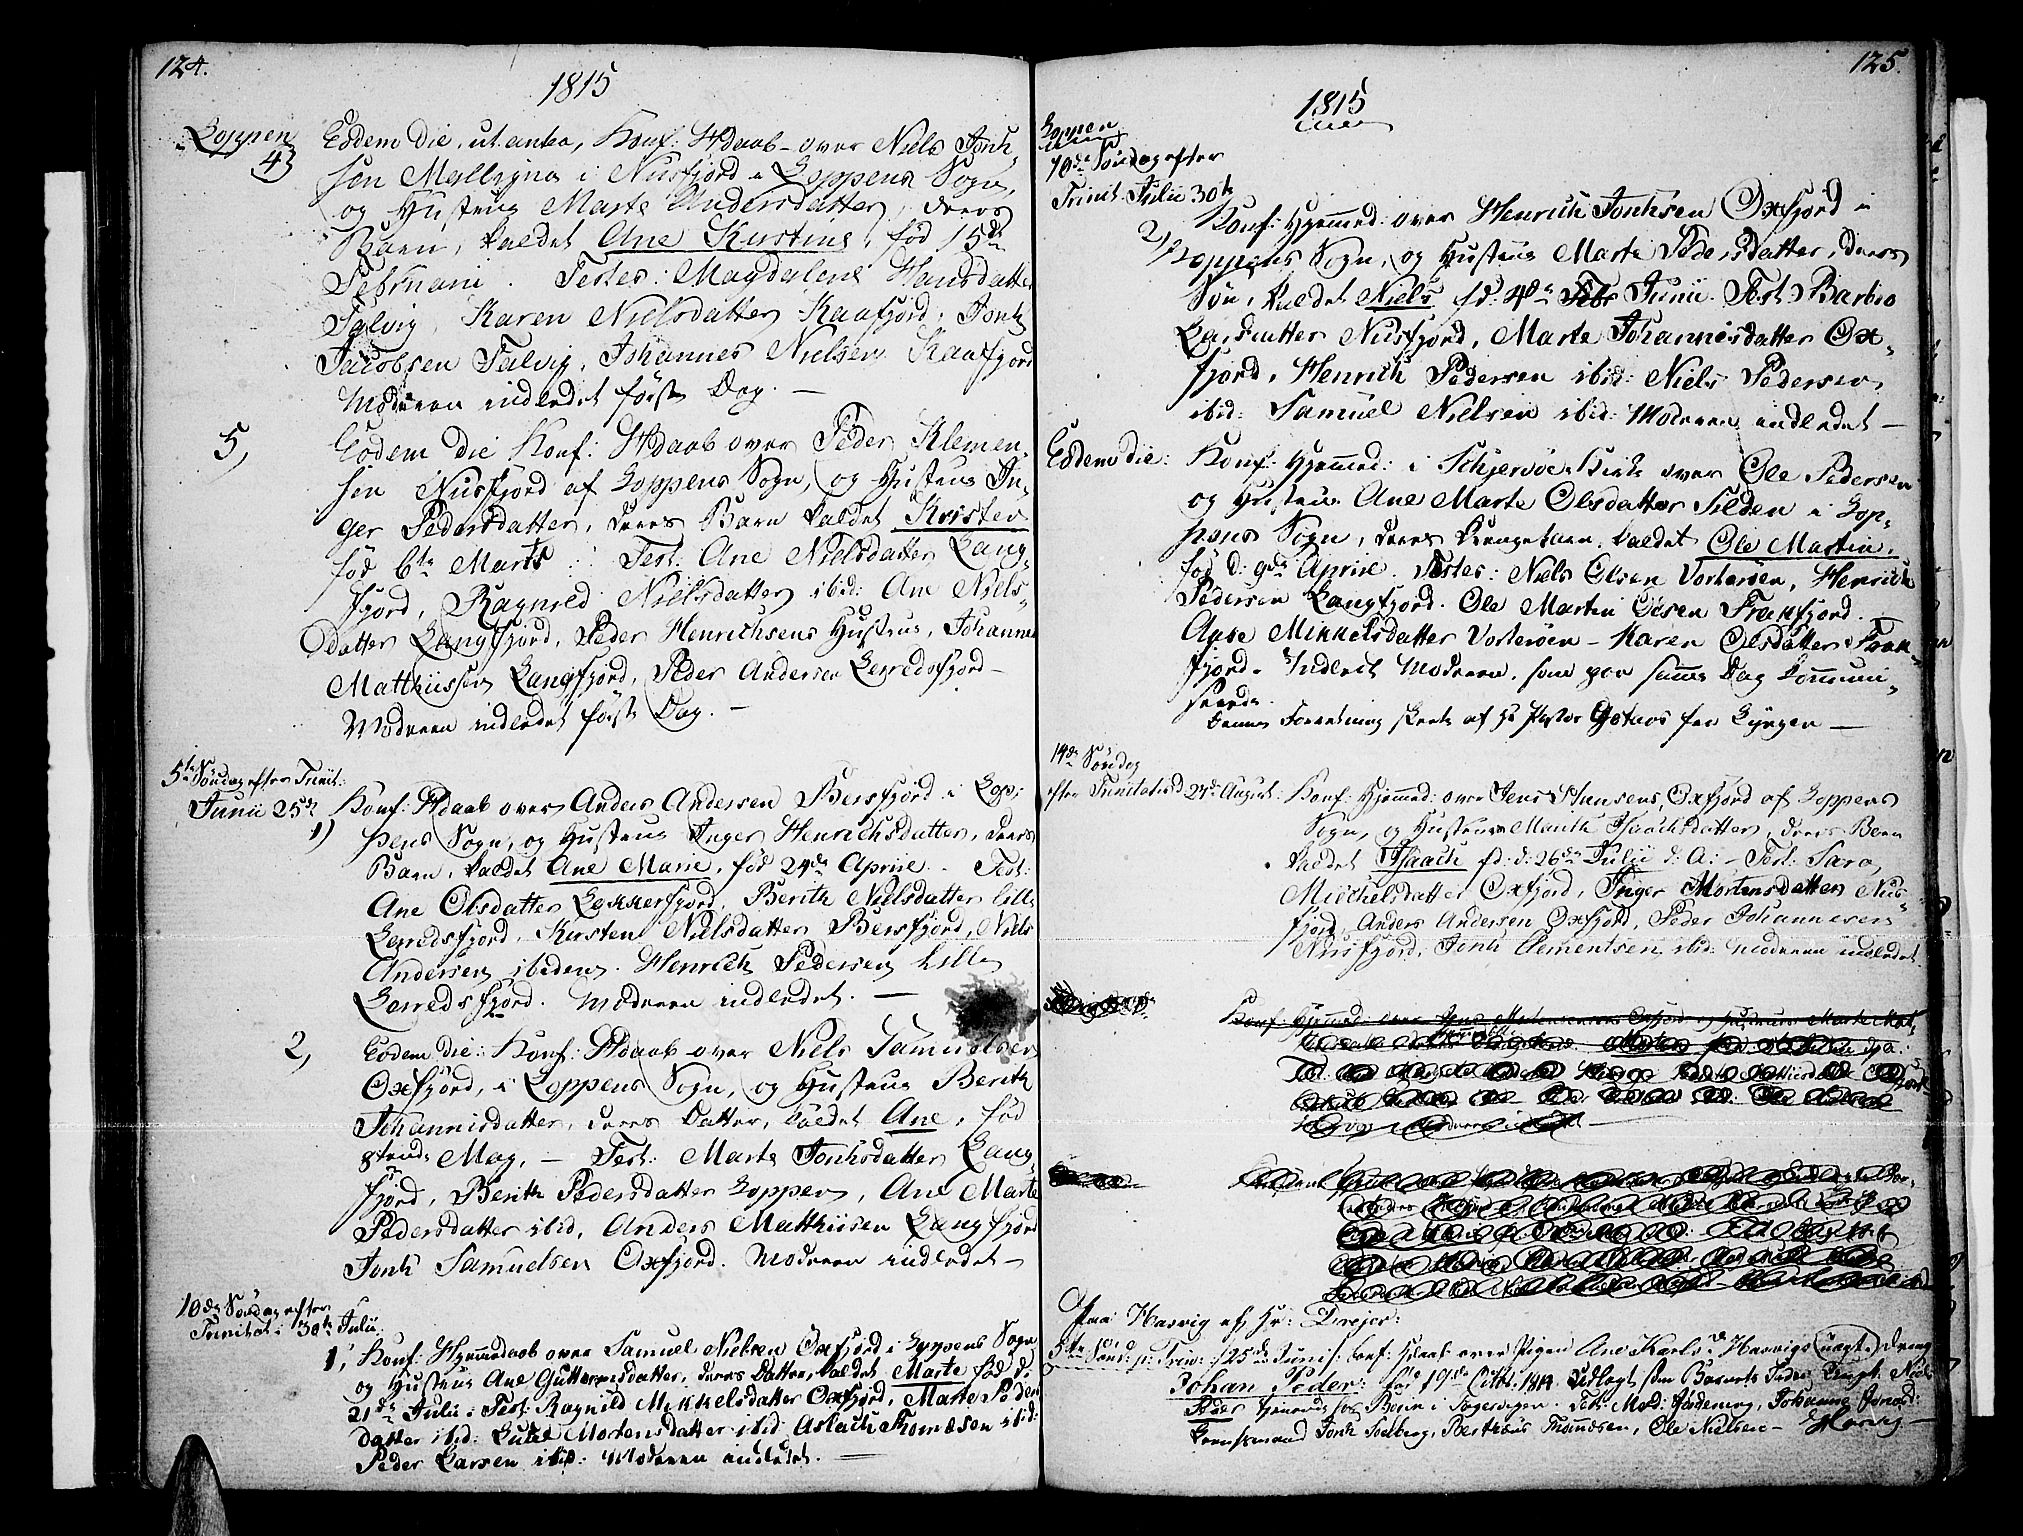 124.
1815
Loppen
4)
Eodem Die, ut antea, Konf: Hdaab over Niels Jonk-
sen Mellejgna i Nusfjord i Loppens Sogn,
og Hustrue Marte Andersdatter, deres
Barn, kaldet Ane Kirstine, fød 15de
Februarii. Testes: Magdalene Hansdatter
Talvig, Karen Nielsdatter Kaafjord, Jonk
Jacobsen Talvig, Johannes Nielsen Kaafjord
Moderen indledet første Dag. —
5,
Eodem Die Konf: Hdaab over Peder Klemen-
sen Nusfjord af Loppens Sogn, og Hustrue In-
ger Pedersdatter, deres Barn kaldet Kristen
fød 6te Marts. Test: Ane Nielsdatter Lang-
fjord, Ragnild Nielsdatter ibid: Ane Niels-
datter Langfjord, Peder Henrichsens Hustrue, Johannes
Matthiissen Langfjord, Peder Andersen Lerredsfjord —
Moderen indledet første Dag. —
5te Søndag efter Trinit:
Junii 25de
1)
Konf: Hdaab over Anders Andersen Bersfjord i Lop-
pens Sogn, og Hustrue Inger Henrichsdatter, deres
Barn, kaldet Ane Marie, fød 24de Aprile. Test:
Ane Olsdatter Lokkerfjord, Berith Nielsdatter Lille
Lerredsfjord, Kirsten Nielsdatter Bersfjord, Niels
Andersen ibidem. Henrich Pedersen Lille
Lerredsfjord. Moderen indledet. —
2,
Eodem Die: Konf: Hdaab over Niels Samuelsen
Oxfjord, i Loppens Sogn, og Hustrue Berith
Johannisdatter, deres Datter, kaldet Ane, fød
8tende May, — Test: Marte Jonksdatter Lang-
fjord, Berith Pedersdatter Loppen, Ane Marte
Pedersdatter ibid, Anders Matthiisen Langfjord
Jonk Samuelsen Oxfjord. Moderen indledet —
10de Søndag efter
Trinitat: 30te Julii
1,
Konf: Hjemmedaab over Samuel Nielsen Oxfjord i Loppens Sogn
og Hustrue Ane Guttormsdatter, deres Datter, kaldet Marte fød d:
21de Julii. Test: Ragnild Mikkelsdatter Oxfjord, Marte Peders
datter ibid: Mortensdatter ibid Aslach Thomæsen ibid:
Peder Larsen ibid: Moderen indledet. —
125.
1815
Loppen
10de Søndag efter
Trinit: Julii 30te
2,
Konf: Hjemmed: over Henrich Jonksen Oxfjord i
Loppens Sogn, og Hustrue Marte Pedersdatter, deres
Søn, kaldet Niels fød: 4de Febr Junii. Test: Barbro
Larsdatter Nusfjord, Marte Johannisdatter Ox-
fjord, Henrich Pedersen ibid: Niels Pedersen
ibid: Samuel Nielsen ibid: Moderen indledet —
Eodem Die:
Konf: Hjemmed: i Schjervøe Kirke over Ole Pedersen
og Hustrue Ane Marte Olsdatter Silden i Lop-
pens Sogn, deres Drengebarn, kaldet Ole Martin,
fød d: 9de Aprile. Testes: Niels Olsen Vorterøen, Henrich
Pedersen Langfjord. Ole Martin Olsen Frakfjord.
Aabe Mikkelsdatter Vorterøen — Karen Olsdatter Frak-
fjord. Indledt Moderen, som paa samme Dag Communi-
cerede.
Denne Forretning skeete af Hr Pastor fra Lyngen —
14de Søndag
efter Trinitatis d 27de August:
Konf: Hjemmed: over Jens Hansens, Oxfjord af Loppens
Sogn, og Hustrue Marith Isachsdatter, deres Barn
kaldet Isaach fd: d: 26de Julii d: A: — Test: Sara
Michelsdatter Oxfjord, Inger Mortensdatter Nus-
fjord, Anders Andersen Oxfjord, Peder Johannesen
Nusfjord, Jonk Clementsen ibid: Moderen indledet.
Konf: Hjemmed: over Jens Oxfjord og Hustrue Marte
Paa Hasvig af Hr: Dreyer:
5te Sønd: p: Trin: 25de Junii: Konf: over Pigen Ane Karls d: Hasvigs (uægte) Dreng
Johan Peder: fød 19de Octbr. 1814. Udlagt som Barnets Fader
Test: Mad: Johanne
Jonk Solberg, Ole Nielsen — Hasvig —